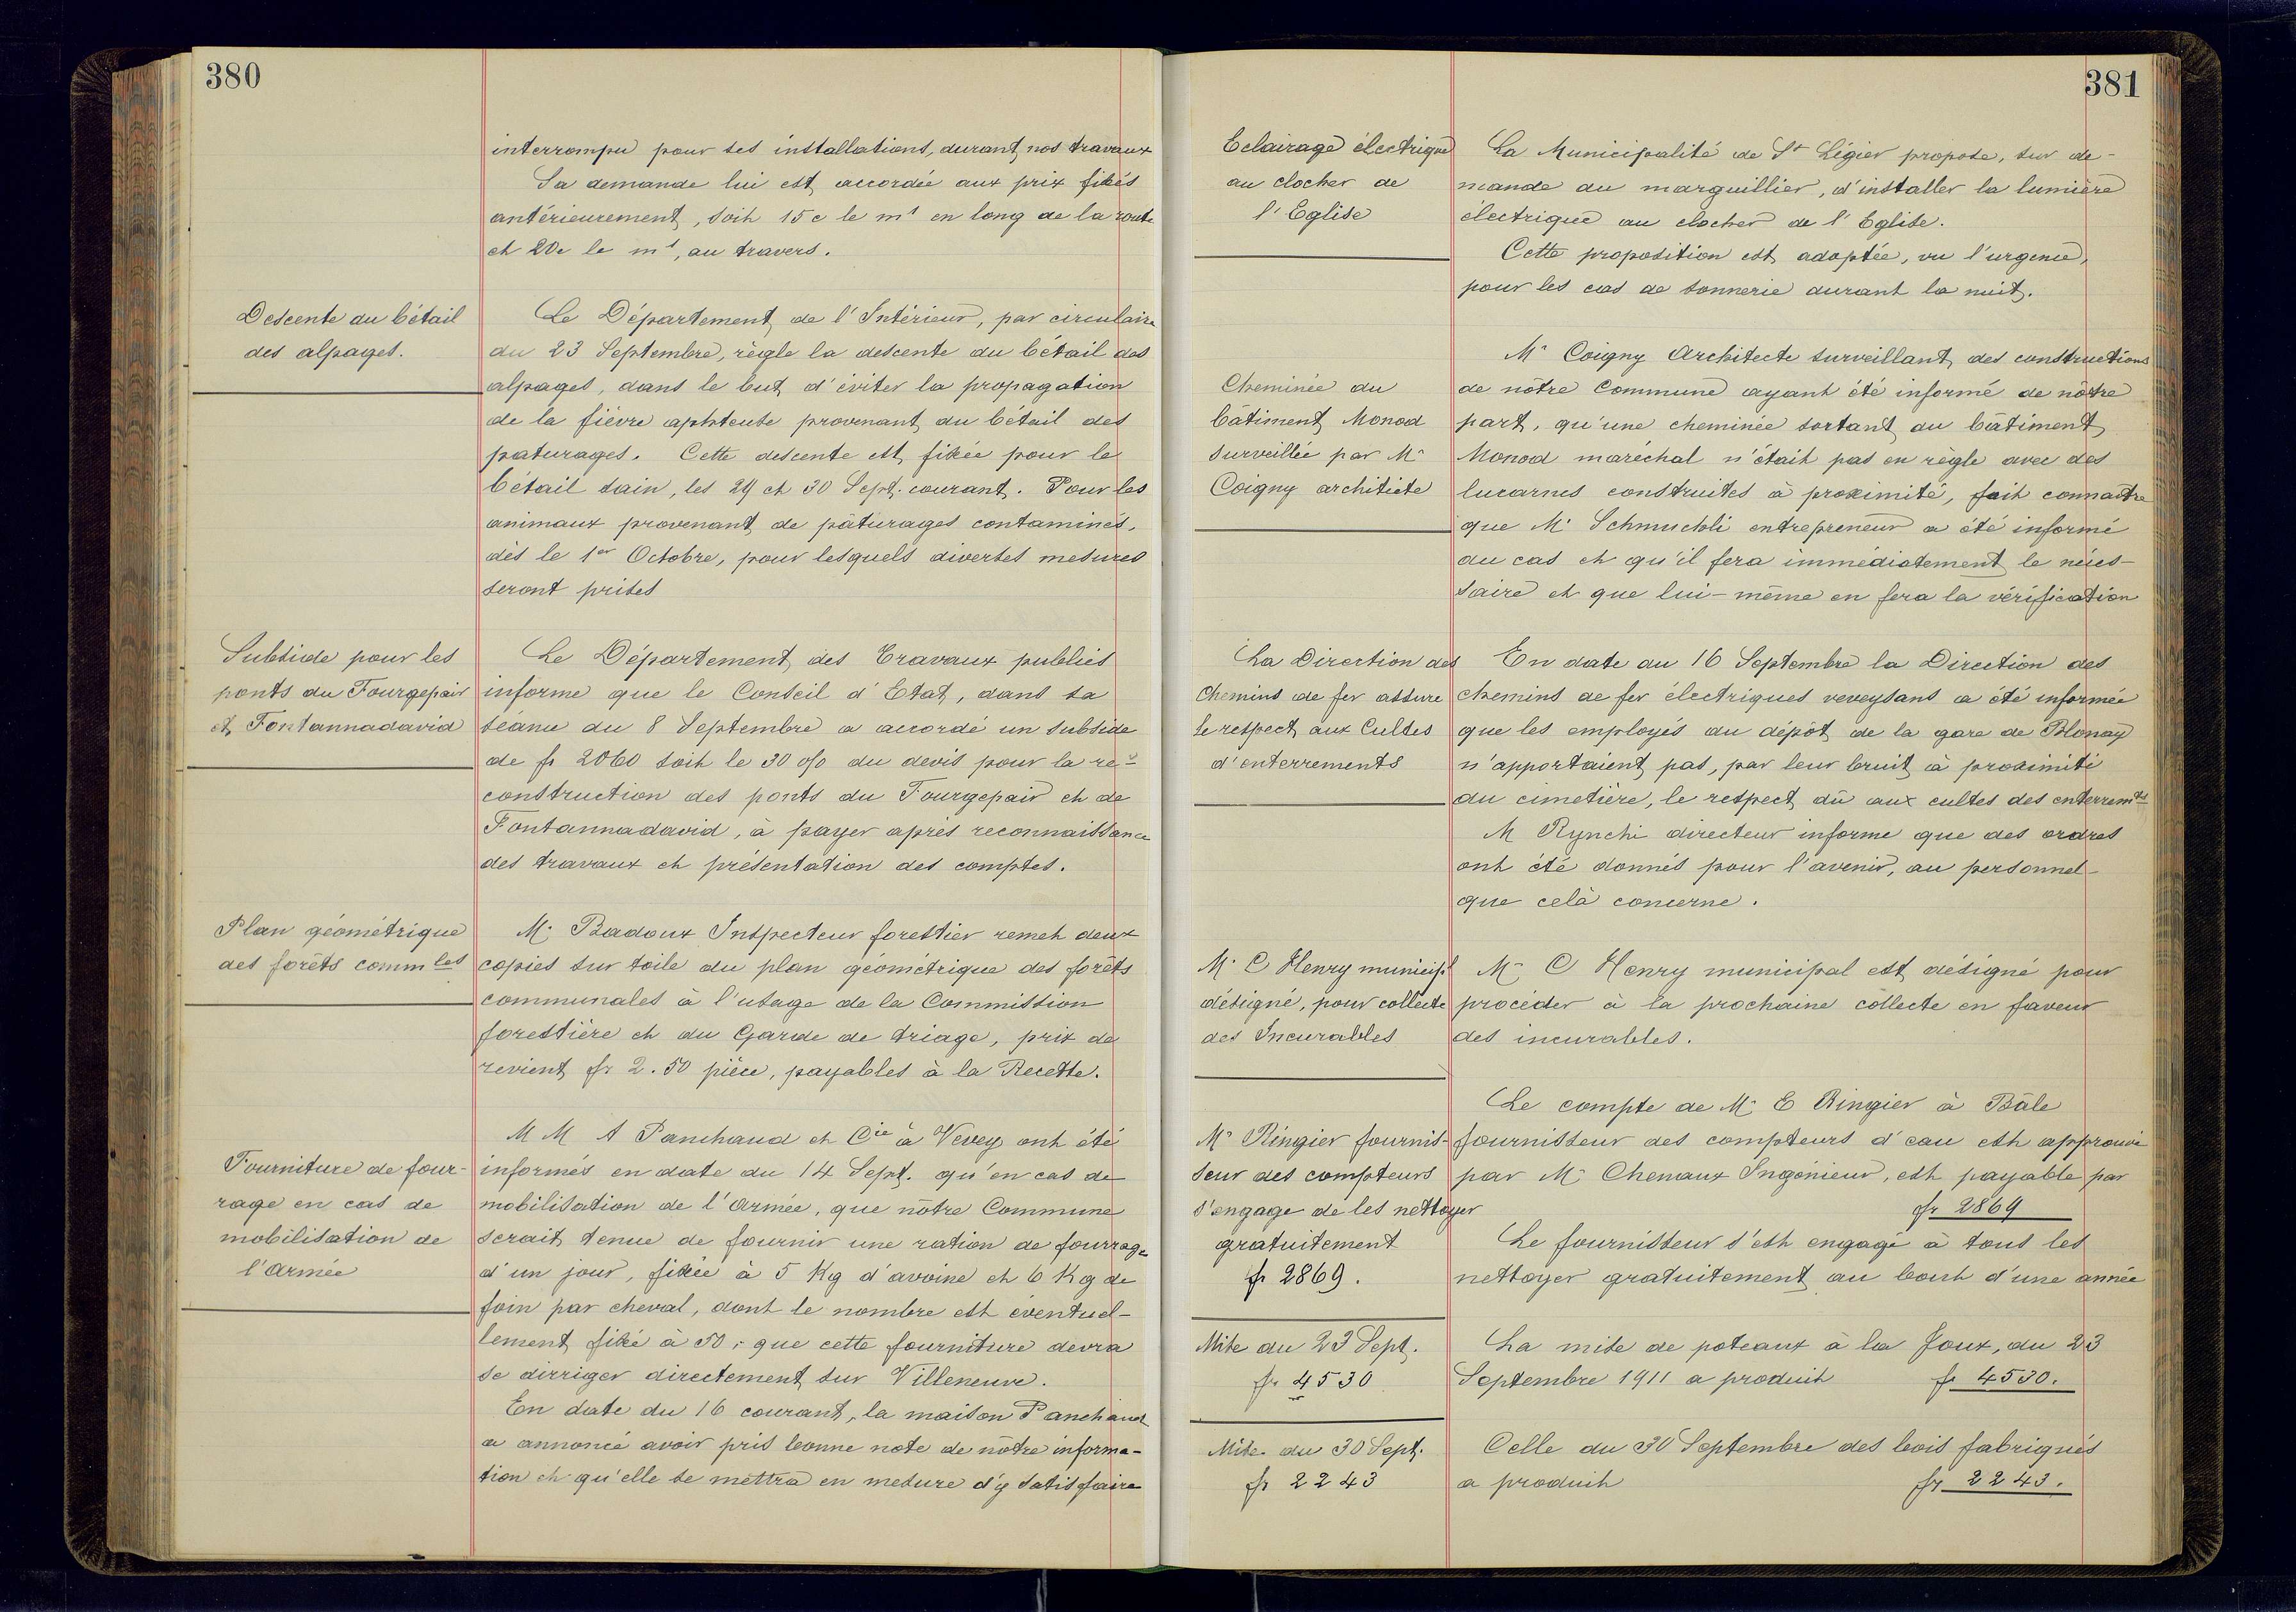 380
interrompu pour ses installations, durant nos travaux
Sa demande lui est accordée aux prix fixés
antérieurement, soit 15 c le mt en long de la route
et 20c le mt, au travers.
Descente du bétail
des alpages.
Le Département de l'Intérieur, par circulaire
du 23 Septembre, règle la descente du bétail des
alpages, dans le but d'éviter la propagation
de la fièvre aphteuse provenant du bétail des
paturages. Cette descente est fixée pour le
bétail sain, les 29 et 30 Sept. courant. Pour les
animaux provenant de pâturages contaminés,
dès le 1er Octobre, pour lesquels diverses mesures
seront prises
Subside pour les
ponts du Fourgepair
et Fontannadavid
Le Département des Travaux publics
informe que le Conseil d'Etat, dans sa
séance du 8 Septembre a accordé un subside
de fr 2060 soit le 30 o/o du devis pour la re-
construction des ponts du Fourgepair et de
Fontannadavid, à payer après reconnaissance
des travaux et présentation des comptes.
Plan géométrique
des forêts commles
M. Badoux Inspecteur forestier remet deux
copies sur toile du plan géométrique des forêts
communales à l'usage de la Commission
forestière et du Garde de triage, prix de
revient fr 2.50 pièce, payables à la Recette.
Fourniture de four-
rage en cas de
mobilisation de
l'Armée
M M A Panchaud et Cie à Vevey ont été
informés en date du 14 Sept. qu'en cas de
mobilisation de l'Armée, que nôtre Commune
serait tenue de fournir une ration de fourrage
d'un jour, fixée à 5 Kg d'avoine et 6 Kg de
foin par cheval, dont le nombre est éventuel-
lement fixé à 50, que cette fourniture devra
se dirriger directement sur Villeneuve.
En date du 16 courant, la maison Panchaud
a annoncé avoir pris bonne note de nôtre informa-
tion et qu'elle se mettra en mesure d'y satisfaire
381
Eclairage électrique
au clocher de
l'Eglise
La Municipalité de St Légier propose, sur de-
mande du marguillier, d'installer la lumière
électrique au clocher de l'Eglise.
Cette proposition est adoptée, vu l'urgence,
pour les cas de sonnerie durant la nuit.
Cheminée du
bâtiment Monod
surveillée par Mr
Coigny architecte
Mr Coigny Architecte surveillant des constructions
de nôtre Commune ayant été informé de nôtre
part, qu'une cheminée sortant du bâtiment
Monod maréchal n'était pas en règle avec des
lucarnes construites à proximité, fait connaître
que Mr Schmuckli entrepreneur a été informé
du cas et qu'il fera immédiatement le néces-
saire et que lui-même en fera la vérification
La Direction des
Chemins de fer assure
le respect aux Cultes
d'enterrements
En date du 16 Septembre la Direction des
chemins de fer électriques veveysans a été informée
que les employés du dépôt de la gare de Blonay
n'apportaient pas, par leur bruit à proximité
du cimetière, le respect dû aux cultes des enterremts
M Rynchi directeur informe que des ordres
ont été donnés pour l'avenir, au personnel
que celà concerne.
Mr C Henry municipl
désigné, pour collecte
des Incurables
Mr C Henry municipal est désigné pour
procéder à la prochaine collecte en faveur
des incurables.
Mr Ringier fournis-
seur des compteurs
s'engage de les nettoyer
gratuitement
fr 2869.
Le compte de Mr E Ringier à Bâle
fournisseur des compteurs d'eau est approuvé
par Mr Chenaux Ingénieur, est payable par
fr 2869
Le fournisseur s'est engagé à tous les
nettoyer gratuitement au bout d'une année
Mise du 23 Sept.
fr 4530
La mise de poteaux à la Joux, du 23
Septembre 1911 a produit fr 4530.
Mise du 30 Sept.
fr 2243
Celle du 30 Septembre des bois fabriqués
a produit fr 2243.